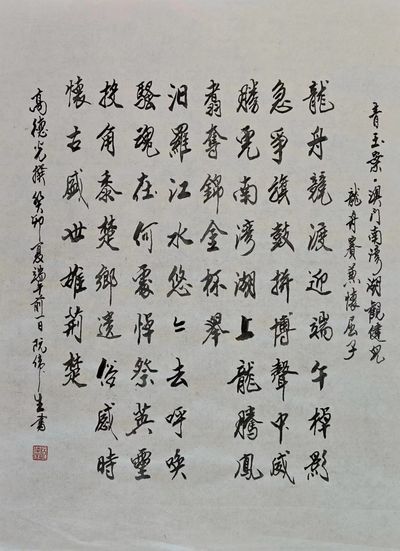 青玉案·澳門南灣湖觀健兒
龍舟賽兼懷屈子
龍舟競渡迎端午棹影
急爭旗鼓拼博聲中威
勝虎南灣湖上龍騰鳳
翥奪錦金杯舉
汨羅江水悠々去呼喚
騷魂在何處悼祭英靈
投角黍楚鄉遺俗感時
懷古盛世雄荊楚
高德光撰癸卯夏端午前一日阮偉生書